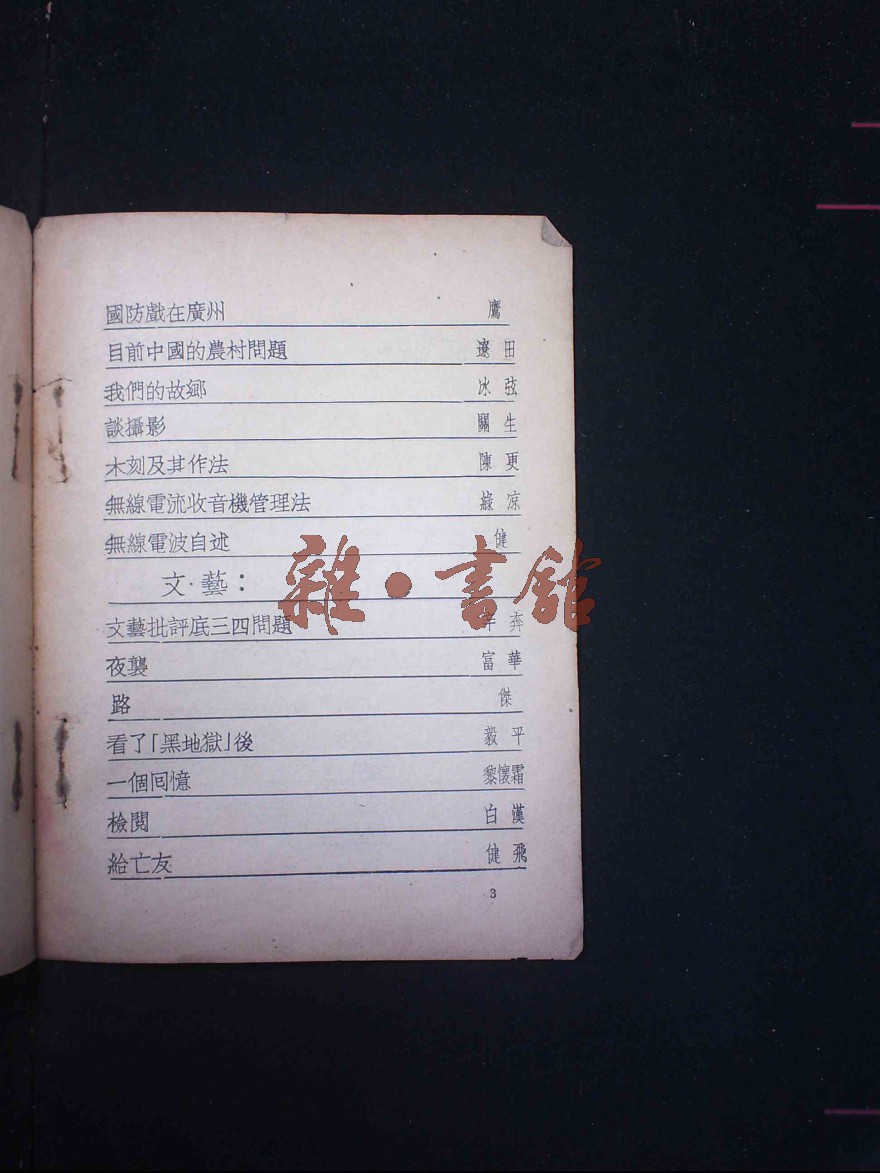 國防戲在廣州 鷹
目前中國的農村問題 遼田
我們的故鄉 冰弦
談攝影 關生
木刻及其作法 陳更
無線電流收音機管理法 綠凉
無線電波自述 健
文·藝：
文藝批評底三四問題 齊
夜襲 富華
路 傑
看了「黑地獄」後 毅平
一個回憶 黎懷霜
檢閱 白漢
給亡友 健飛
3
雜·書館